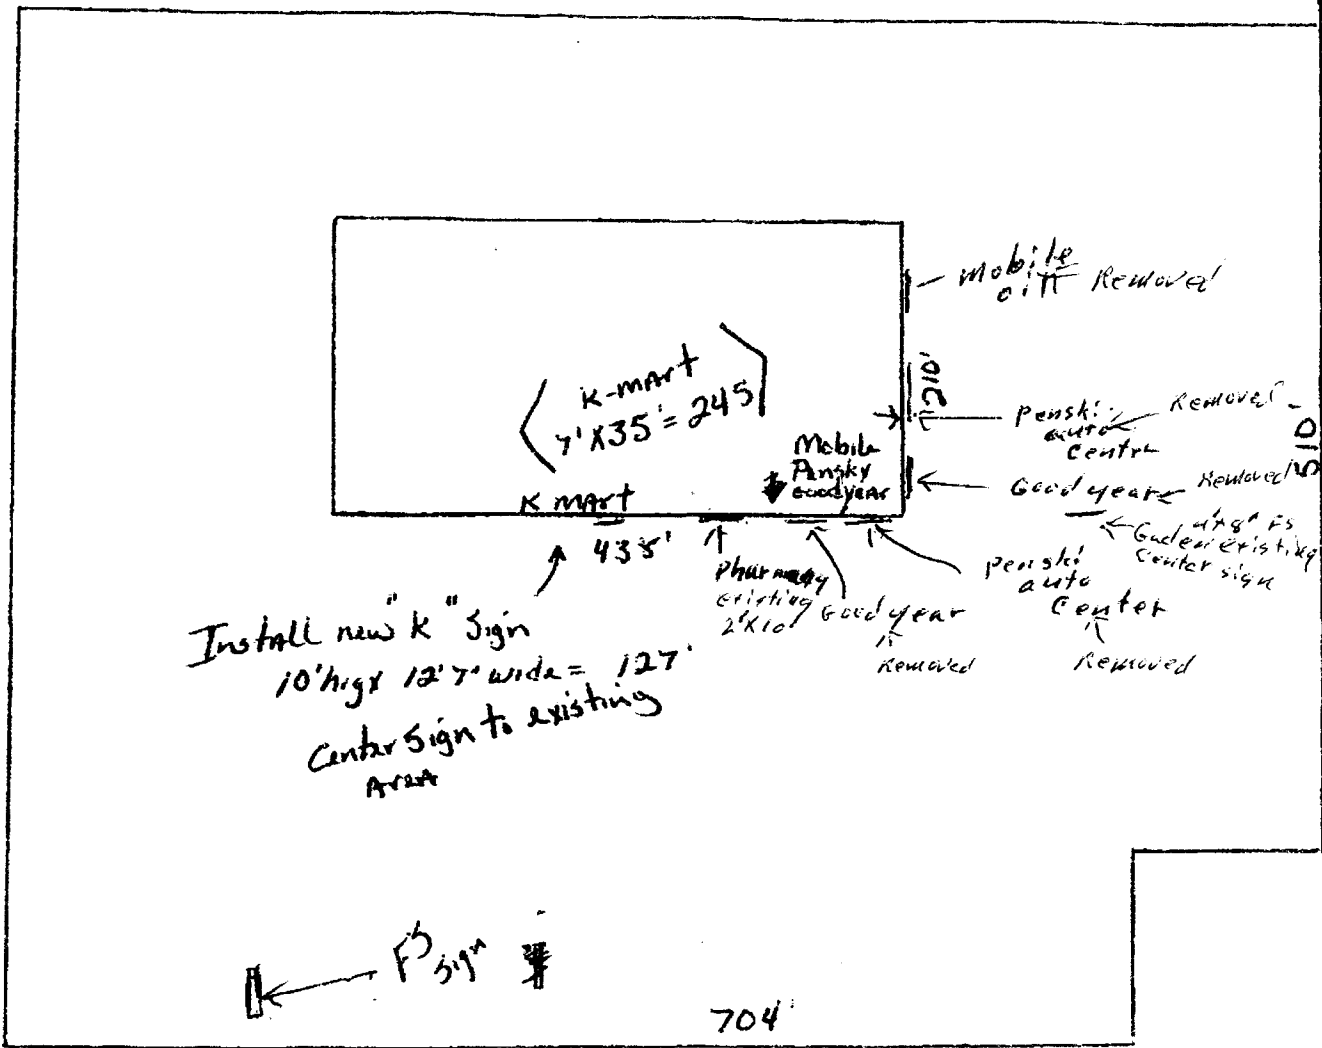 mobile
oil Removed
K-mart
7'X35'=245
210'
Penski
auto
Centr
Removed
510
Mobile
Pensky
Goodyear
Good year
Removed
K mart
435'
4'X8' FS
Garden existing
Center sign
Pharmacy
existing
2'X10'
Good year
Removed
penski
auto
Center
Removed
Install new "K" Sign
10'high X 12'7" wide = 127'
Center Sign to existing
Area
FS
sign
704'